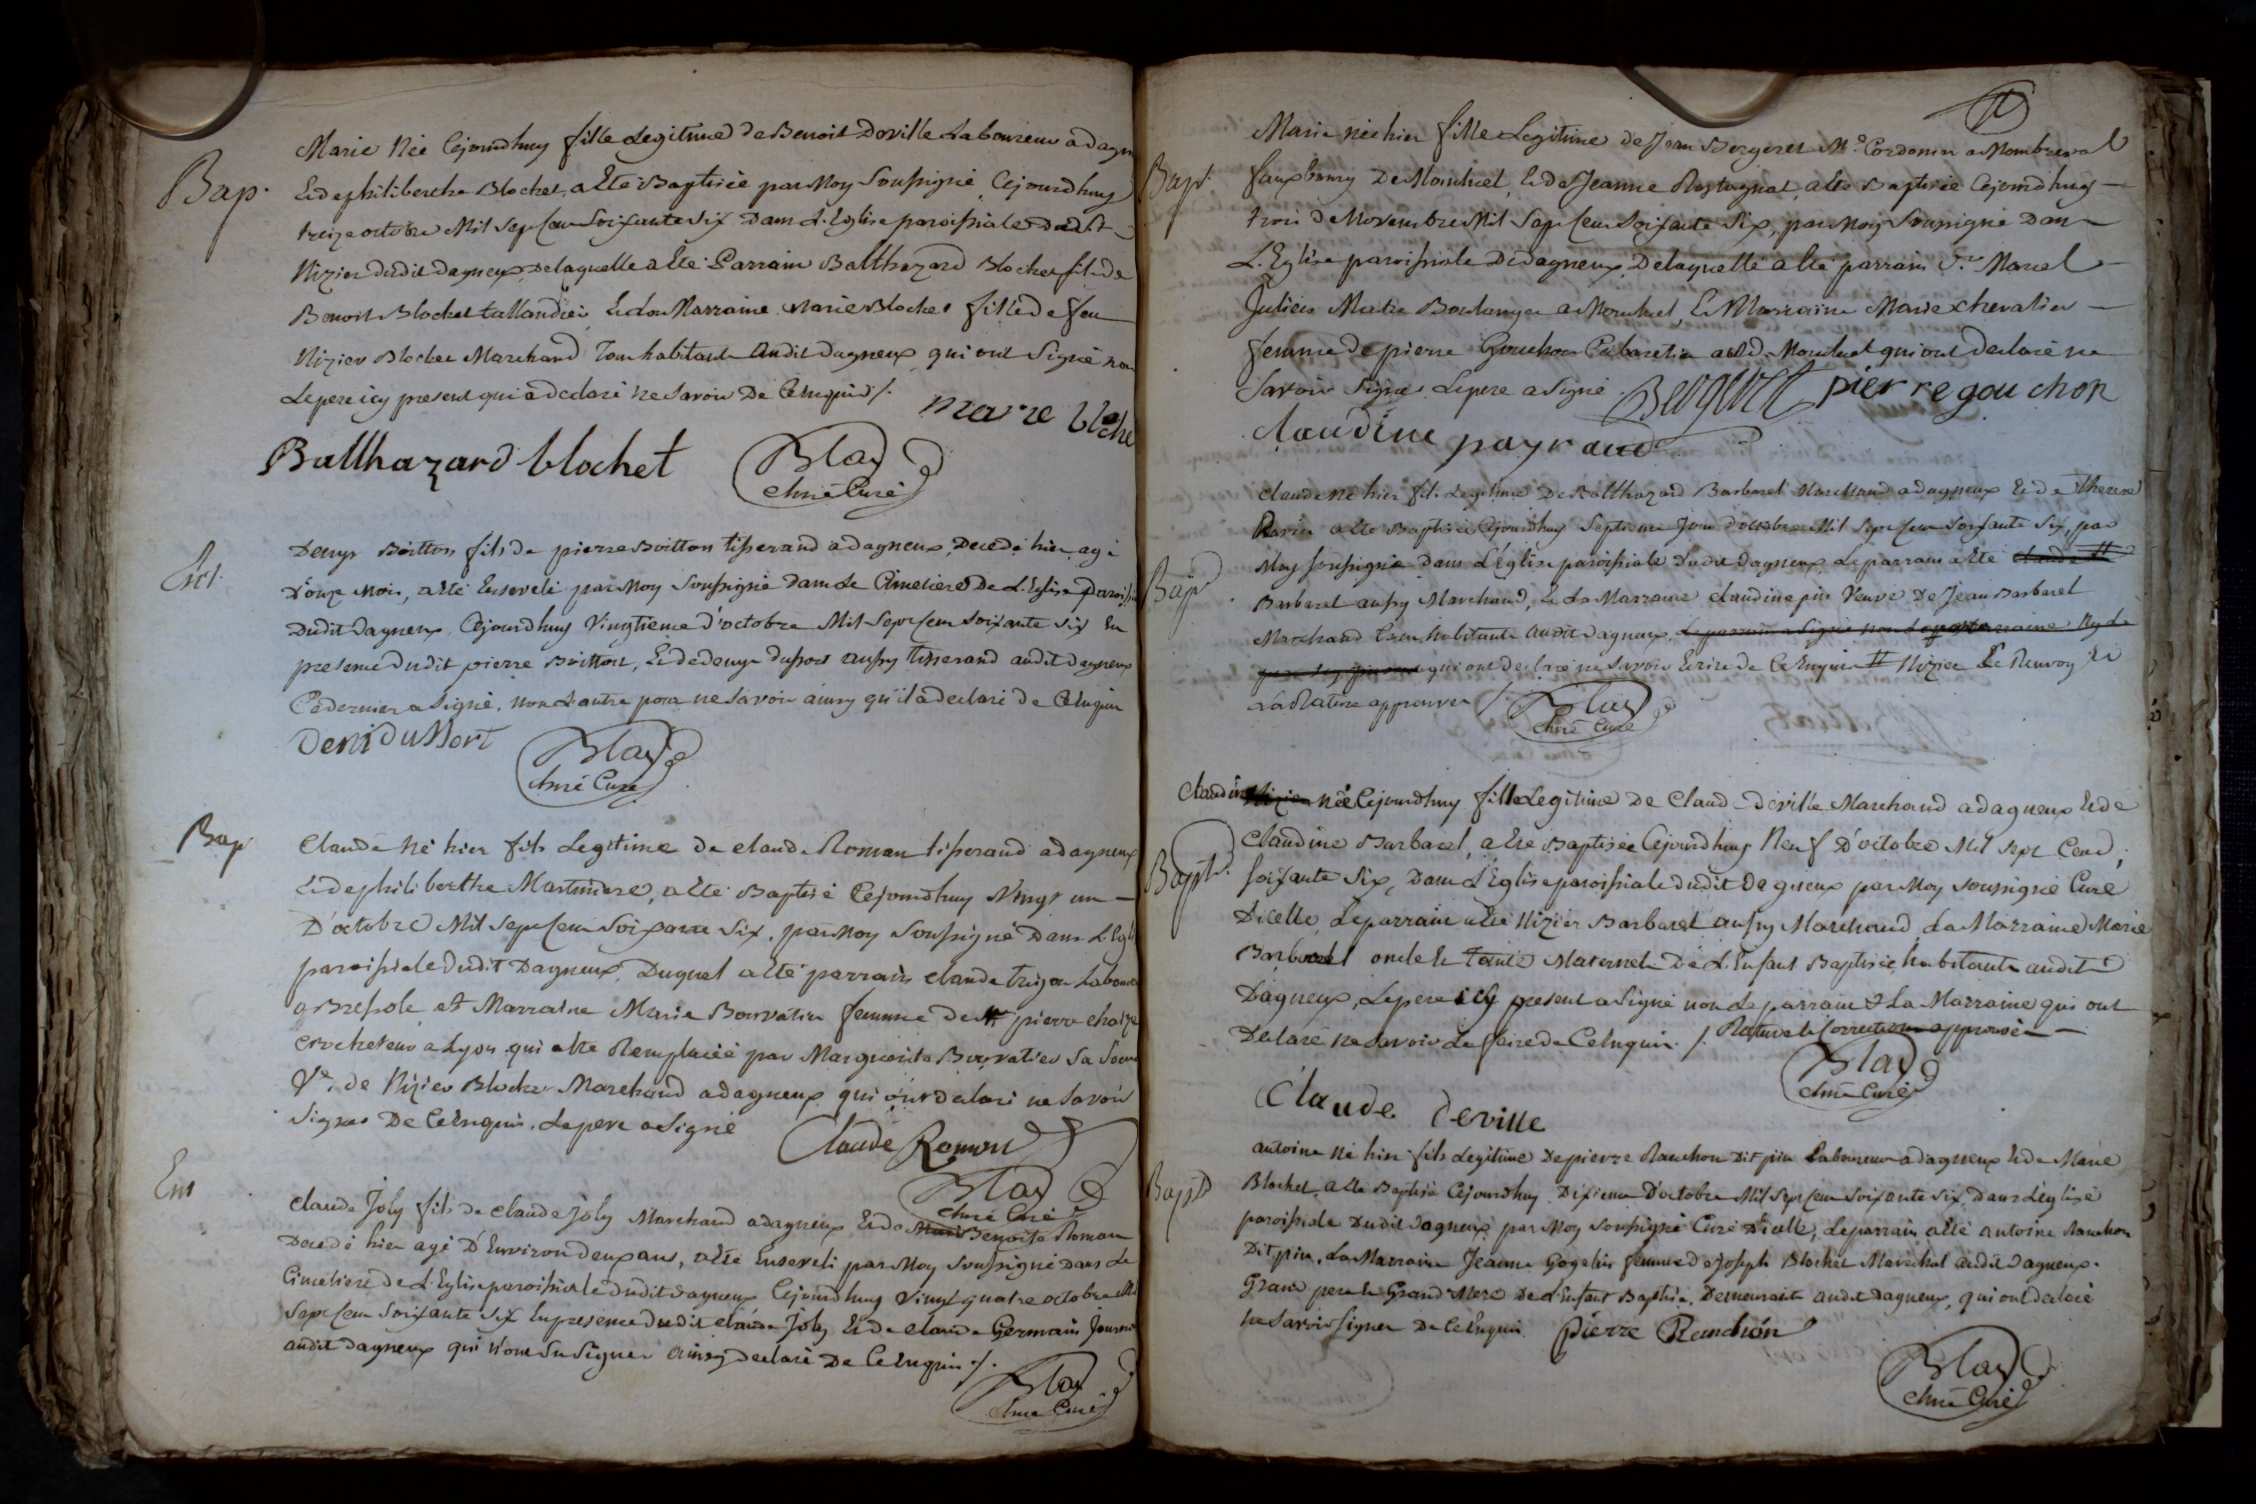 Bap.
Marie Née Cejourdhuy fille Legitime de Benoit Deville Laboureur a dagn
Et de philiberthe Blochet, a Eté Baptisée par Moy Soussigné Cejourdhuy
treize octobre Mil Sept Cent Soixante Six Dans L'Eglise paroissiale de St
Nizier dudit Dagneux, De laquelle a Eté Parrain Balthazard Blochet fils de
Benoit Blochet tallandier, Et la Marraine Marie Blochet fille de feu
Nizier Blochet Marchand Tous habitants Audit Dagneux, qui ont Signé non
Le pere icy present qui a declaré ne Savoir De Ce Enquis /.
marie bloche
Balthazard blochet
Blay
Curé
Ent.
Denys Boitton fils de pierre Boitton tisserand a dagneux, Decedé hier, agé
D'onze Mois, a Eté Enseveli par Moy Soussigné Dans Le Cimetiere De L'Eglise paroiss
Dudit Dagneux, Cejourdhuy Vingtieme d'octobre Mil Sept Cent Soixante Six En
presence dudit pierre Boitton, Et de denys dussort aussy tisserand audit Dagneux
Ce dernier a Signé, non L'autre pour ne Savoir ainsy qu'il a declaré de Ce Enquis
Deni duSSort
Blay
Curé
Bap
Claude Né hier fils Legitime de Claude Roman tisserand a dagneux
Et de philiberthe Martiniere, a Eté Baptisé Cejourdhuy Vingt un
D'octobre Mil Sept Cent Soixante Six, par Moy Soussigné Dans L'Egli
paroissiale dudit Dagneux, Duquel a Eté parrain Claude Laboure
a Bressole et Marraine Marie Bouvatier femme de pierre
Crocheteur a Lyon, qui a Eté Remplacée par Marguerite Bouvatier Sa Soeur
Ve. de Nizier Blochet Marchand a dagneux qui ont declaré ne Savoir
Signer De Ce Enquis, Le pere a Signé
Claude Romon
Blay
Curé
Ent
Claude Joly fils de Claude Joly Marchand a dagneux Et de Benoite Roman
Decedé hier agé D'Environ deux ans, a Eté Enseveli par Moy Soussigné Dans Le
Cimetiere de L'Eglise paroissiale dudit Dagneux Cejourdhuy Vingt quatre octobre Mil
Sept Cent Soixante Six En presence dudit Claude Joly Et de Claude Germain
audit Dagneux qui n'ont Su Signer Ainsy declaré De Ce Enquis /.
Blay
Curé
Bap.
Marie née hier fille Legitime de Jean Bergeret Me. Cordonier a Montbreval
fauxbourg De Montluel, Et de Jeanne Rostagnat, a Eté Baptisée Cejourdhuy
trois de Novembre Mil Sept Cent Soixante Six, par Moy Soussigné Dans
L'Eglise paroissiale De Dagneux, De laquelle a Eté parrain Marcel
Julien Maitre Boulanger a Montluel, Et Marraine Marie Chevalier
femme de pierre Gouchon Cabaretier aud. Montluel qui ont declaré ne
Savoir Signer. Le pere a Signé
Bergeret pierre gouchon
claudine payraud
Bap
Claude Né hier fils Legitime De Balthazard Barbaret Marchand a dagneux Et de Therese
a Eté Baptisé Cejourdhuy Septieme Jour d'octobre Mil Sept Cent Soixante Six, par
Moy Soussigné Dans L'Eglise paroissiale Dudit Dagneux, Le parrain a Eté
Barbaret aussy Marchand, Et La Marraine Claudine pin Veuve De Jean Barbaret
Marchand Tous habitants audit Dagneux,
qui ont declaré ne Savoir Ecrire de Ce Enquis # Nizier Le Renvoy Et
La Rature approuvés /.
Blay
Curé
Bapt.
Claudine Née Cejourdhuy fille Legitime De Claude Deville Marchand a dagneux Et de
Claudine Barbaret, a Eté Baptisée Cejourdhuy Neuf D'octobre Mil Sept Cent
Soixante Six, Dans L'Eglise paroissiale dudit Dagneux par Moy Soussigné Curé
D'icelle, Le parrain a Eté Nizier Barbaret aussy Marchand, La Marraine Marie
Barbaret oncle Et Tante Maternels De L'Enfant Baptisée, habitants audit
Dagneux, Le pere icy present a Signé non Le parrain & La Marraine qui ont
Declaré ne Savoir Le faire de Ce Enquis. /. Rature Et Correction approuvé
Blay
Curé
Claude deville
Bapt.
Antoine Né hier fils Legitime De pierre Ranchon Dit pin Laboureur a dagneux Et de Marie
Blochet, a Eté Baptisé Cejourdhuy Dixieme D'octobre Mil Sept Cent Soixante Six, Dans L'Eglise
paroissiale Dudit Dagneux, par Moy Soussigné Curé D'icelle, Le parrain a Eté Antoine Ranchon
Dit pin, La Marraine Jeanne femme de Joseph Blochet Marechal audit Dagneux.
Grand pere Et Grand Mere De L'Enfant Baptisé, Demeurants audit Dagneux, qui ont declaré
ne Savoir Signer De Ce Enquis
Pierre Ranchon
Blay
Curé